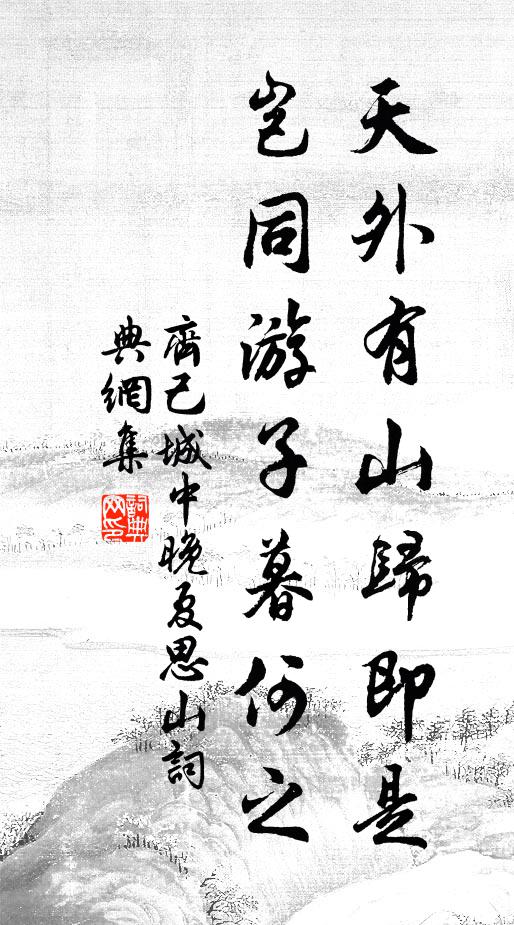 天外有山歸即是
豈同游子暮何之
齊己城中晚夏思山詞
典網集
詞典網印